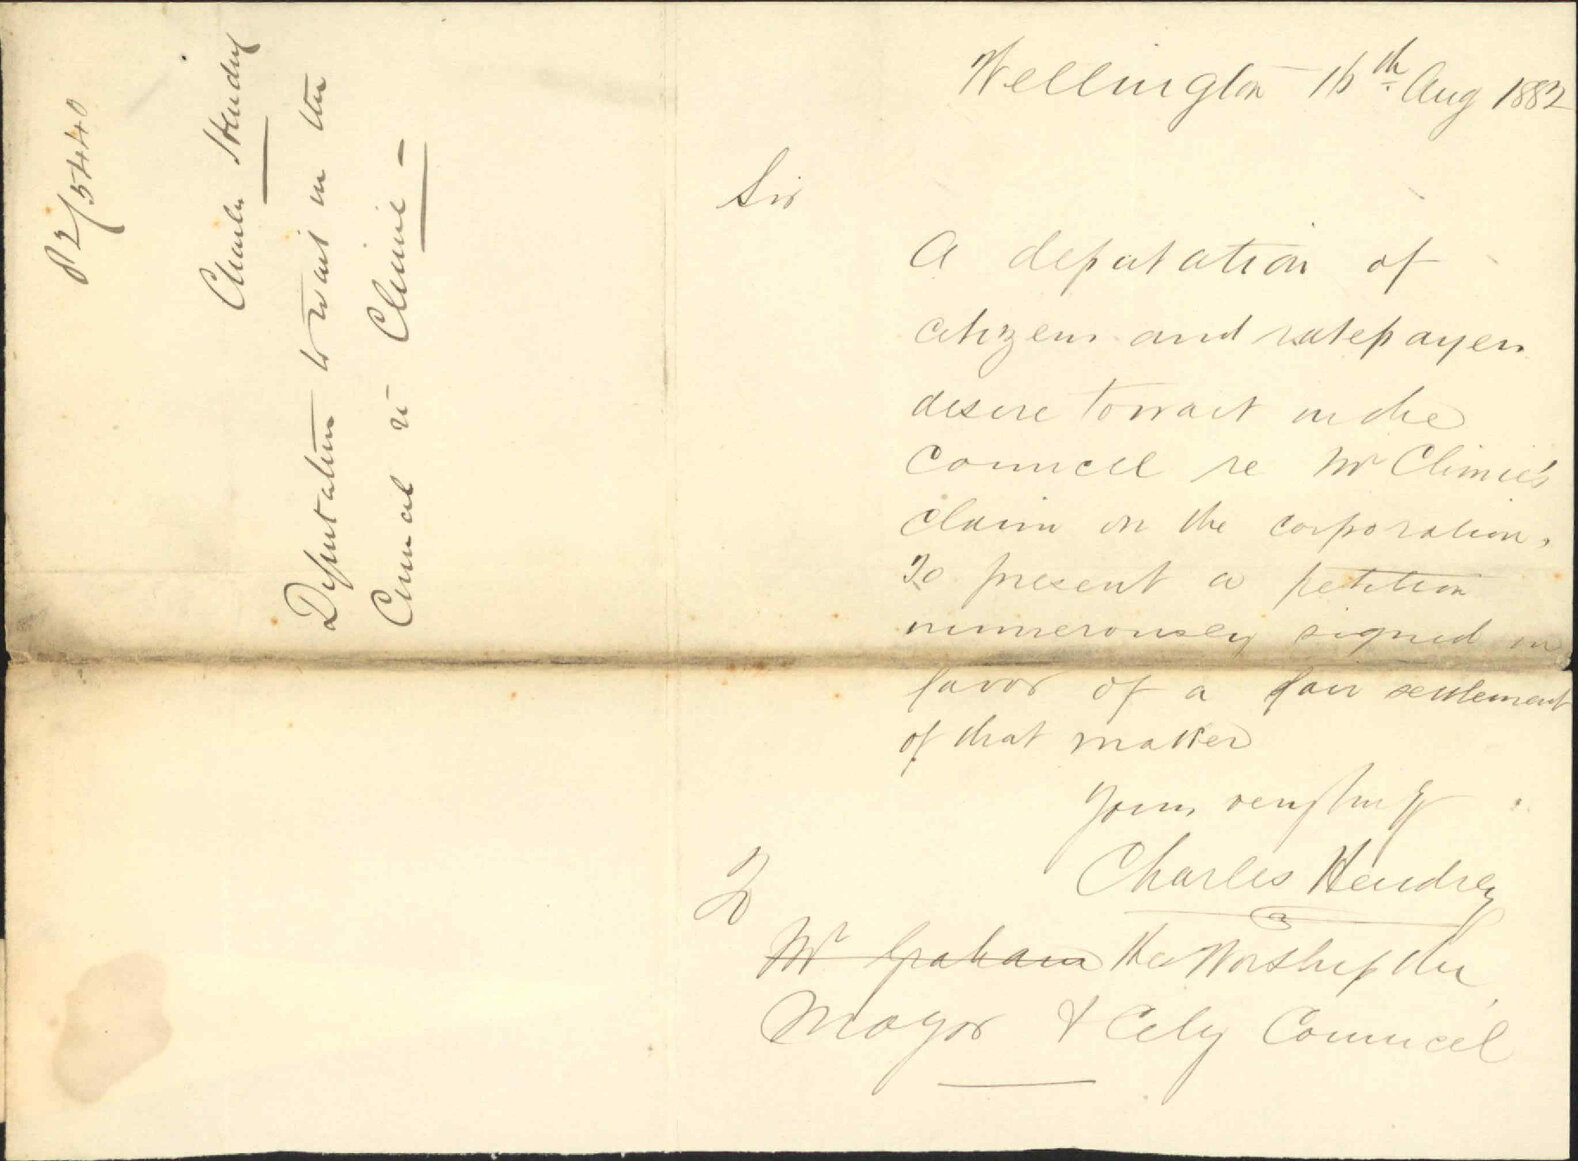 82/5440
Charles Hendry
Deputation to wait on the
Council re Climie -
Wellington 16th Aug 1882
Sir
A deputation of
citizens and ratepayers
desire to wait on the
Council re Mr Climie's
claim on the corporation.
To present a petition
numerously signed in
favor of a fair settlement
of that matter
Yours respectfully
Charles Hendrey
To
Mr Graham His Worship the
Mayor & City Council